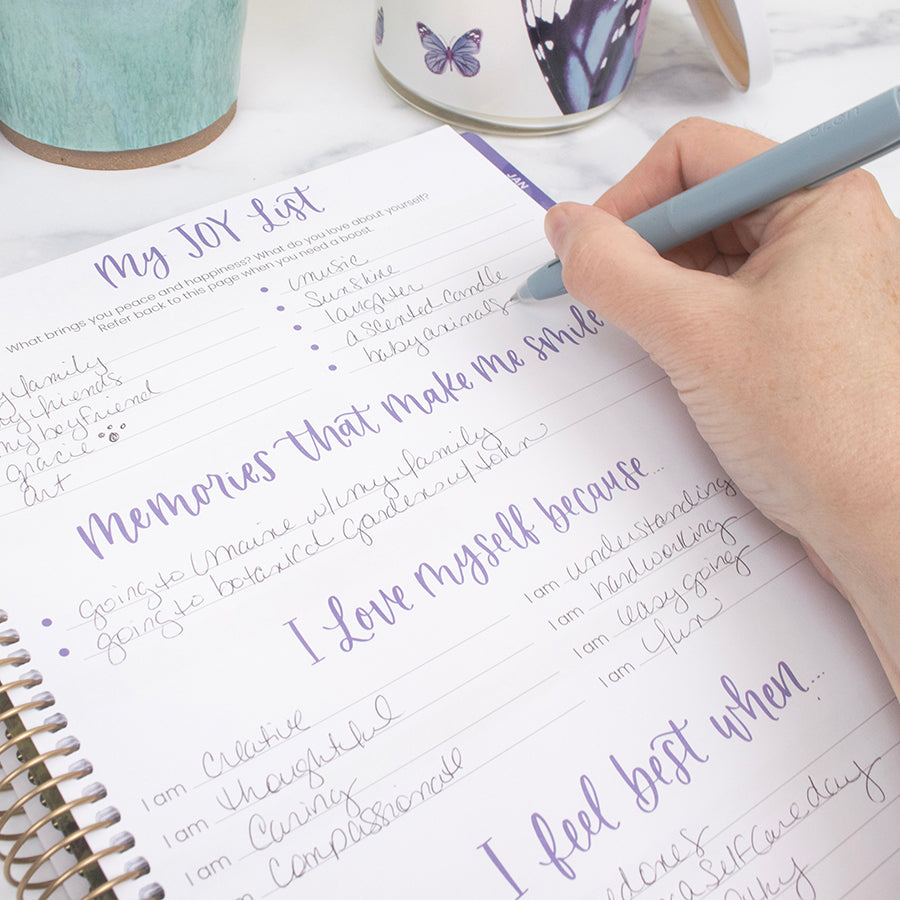 JAN
My JOY List
What brings you peace and happiness? What do you love about yourself?
Refer back to this page when you need a boost.
my family
my friends
my boyfriend
gracie
art
music
sunshine
laughter
a scented candle
baby animals
Memories that make me smile
going to Maine w/ my family
going to botanical gardens w/ John
I Love Myself because...
I am creative
I am thoughtful
I am caring
I am compassionate
I am understanding
I am hardworking
I am easy going
I am fun
I feel best when...
a self care day